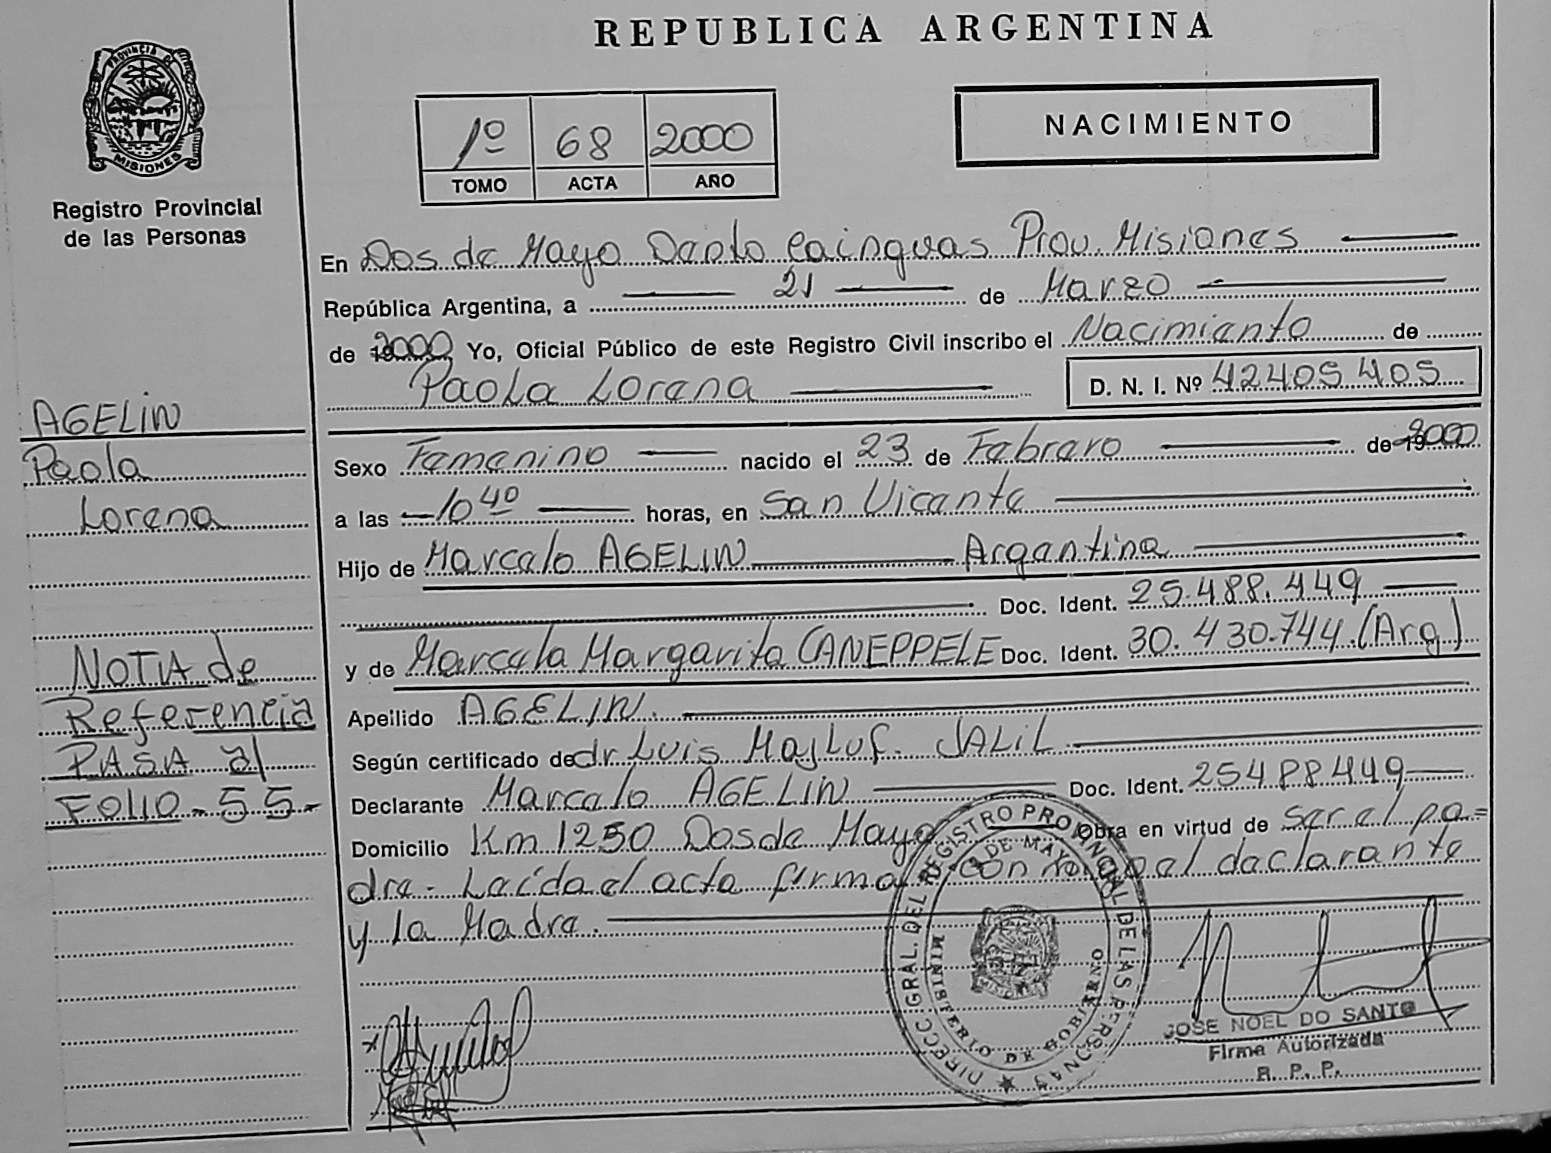 REPUBLICA ARGENTINA
PROVINCIA DE MISIONES
Registro Provincial
de las Personas
1º 68 2000
TOMO ACTA AÑO
NACIMIENTO
En Dos de Mayo Dapto Cainguas Prov. Misiones
República Argentina, a 21 de Marzo
de 2000 Yo, Oficial Público de este Registro Civil inscribo el Nacimiento de
Paola Lorena D. N. I. Nº 42405405
AGELIN
Paola
Lorena
Sexo Femenino nacido el 23 de Febrero de 2000
a las 10 40 horas, en San Vicente
Hijo de Marcelo AGELIN Argentina
Doc. Ident. 25.488.449
y de Marcela Margarita CANEPPELE Doc. Ident. 30.430.744 (Arg)
NOTA de
Referencia
PASA al
FOLIO - 55-
Apellido AGELIN.
Según certificado de dr Luis Majluf. JALIL
Declarante Marcelo AGELIN Doc. Ident. 25488449
Domicilio Km 1250 Dos de Mayo Obra en virtud de ser el pa=
dre. Leída el acta firma con el declarante
y la Madre.
DIRECC. GRAL. DEL REGISTRO PROVINCIAL DE LAS PERSONAS
DE MAYO
MINISTERIO DE GOBIERNO
JOSE NOEL DO SANTO
Firma Autorizada
R. P. P.